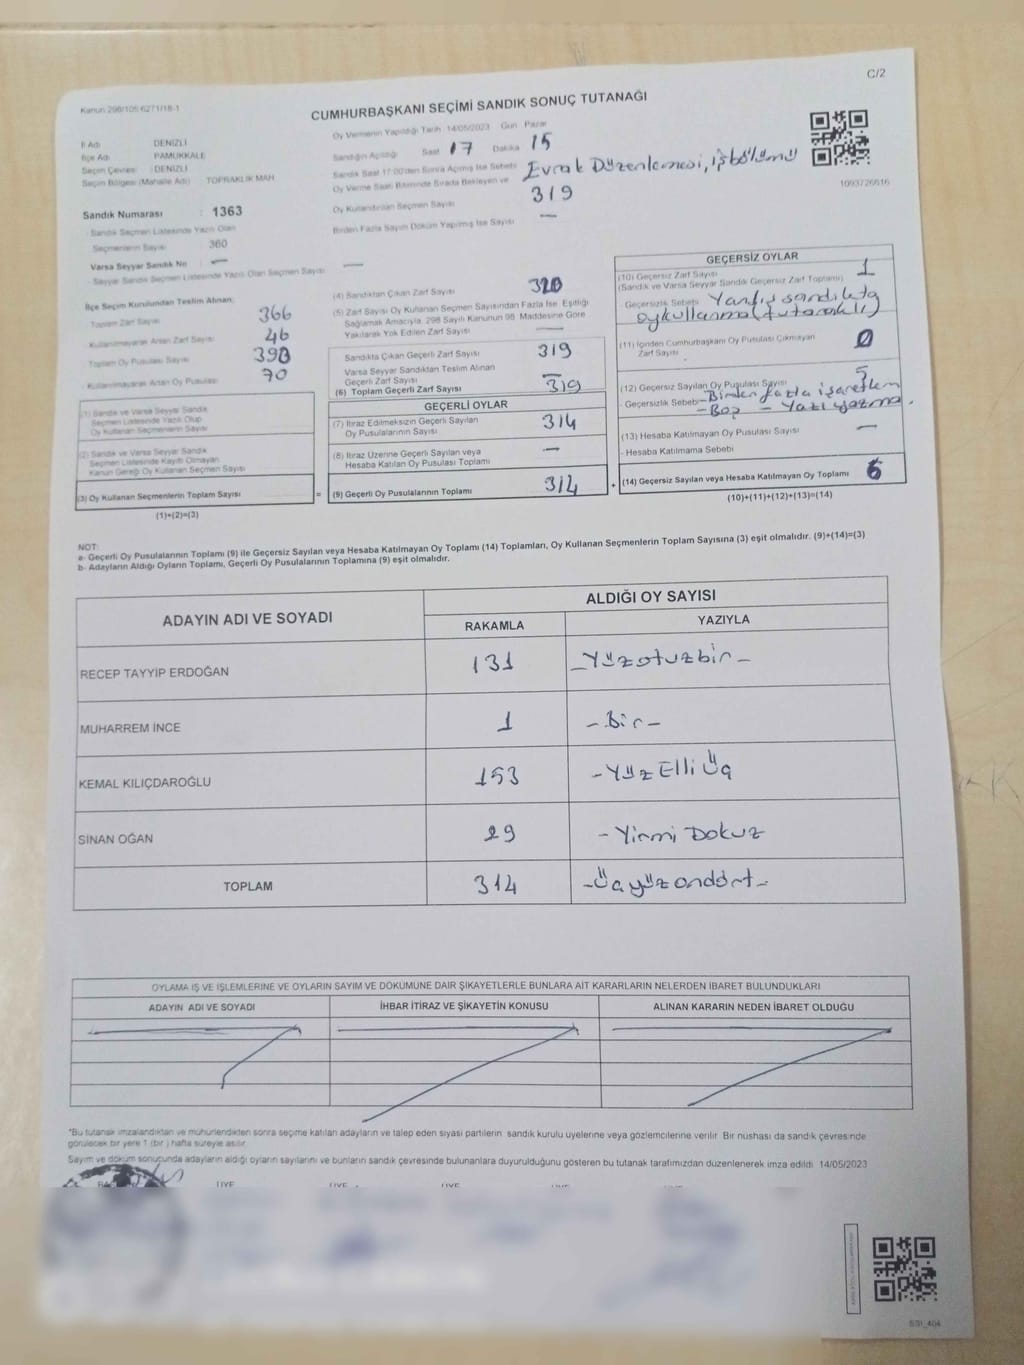 C/2
Kanun 298/105 6271/18-1
CUMHURBAŞKANI SEÇİMİ SANDIK SONUÇ TUTANAĞI
İl Adı DENİZLİ
İlçe Adı PAMUKKALE
Seçim Çevresi : DENİZLİ
Seçim Bölgesi (Mahalle Adı) TOPRAKLIK MAH
Oy Vermenin Yapıldığı Tarih 14/05/2023 Gün Pazar
Sandığın Açıldığı Saat 17 Dakika 15
Sandık Saat 17:00'den Sonra Açılmış İse Sebebi Evrak Düzenlemesi, işbölümü
Oy Verme Saati Bitiminde Sırada Bekleyen ve
Oy Kullandırılan Seçmen Sayısı 319
Birden Fazla Sayım Döküm Yapılmış İse Sayısı —
1093726616
Sandık Numarası : 1363
Sandık Seçmen Listesinde Yazılı Olan
Seçmenlerin Sayısı 360
Varsa Seyyar Sandık No : —
Seyyar Sandık Seçmen Listesinde Yazılı Olan Seçmen Sayısı —
İlçe Seçim Kurulundan Teslim Alınan;
Toplam Zarf Sayısı 366
Kullanılmayarak Artan Zarf Sayısı 46
Toplam Oy Pusulası Sayısı 390
Kullanılmayarak Artan Oy Pusulası 70
(1) Sandık ve Varsa Seyyar Sandık
Seçmen Listesinde Yazılı Olup
Oy Kullanan Seçmenlerin Sayısı
(2) Sandık ve Varsa Seyyar Sandık
Seçmen Listesinde Kaydı Olmayan
Kanun Gereği Oy Kullanan Seçmen Sayısı
(3) Oy Kullanan Seçmenlerin Toplam Sayısı =
(1)+(2)=(3)
(4) Sandıktan Çıkan Zarf Sayısı 320
(5) Zarf Sayısı Oy Kullanan Seçmen Sayısından Fazla İse Eşitliği
Sağlamak Amacıyla, 298 Sayılı Kanunun 98. Maddesine Göre
Yakılarak Yok Edilen Zarf Sayısı —
Sandıkta Çıkan Geçerli Zarf Sayısı 319
Varsa Seyyar Sandıktan Teslim Alınan
Geçerli Zarf Sayısı —
(6) Toplam Geçerli Zarf Sayısı 319
GEÇERLİ OYLAR
(7) İtiraz Edilmeksizin Geçerli Sayılan
Oy Pusulalarının Sayısı 314
(8) İtiraz Üzerine Geçerli Sayılan veya
Hesaba Katılan Oy Pusulası Toplamı —
(9) Geçerli Oy Pusulalarının Toplamı 314 +
GEÇERSİZ OYLAR
(10) Geçersiz Zarf Sayısı 1
(Sandık ve Varsa Seyyar Sandık Geçersiz Zarf Toplamı)
Geçersizlik Sebebi Yanlış sandıkta
oykullanma(tutanaklı)
(11) İçinden Cumhurbaşkanı Oy Pusulası Çıkmayan
Zarf Sayısı 0
(12) Geçersiz Sayılan Oy Pusulası Sayısı 5
Geçersizlik Sebebi - Birden fazla işaretlem
- Boş - Yazı yazma.
(13) Hesaba Katılmayan Oy Pusulası Sayısı —
- Hesaba Katılmama Sebebi
(14) Geçersiz Sayılan veya Hesaba Katılmayan Oy Toplamı 6
(10)+(11)+(12)+(13)=(14)
NOT:
a- Geçerli Oy Pusulalarının Toplamı (9) ile Geçersiz Sayılan veya Hesaba Katılmayan Oy Toplamı (14) Toplamları, Oy Kullanan Seçmenlerin Toplam Sayısına (3) eşit olmalıdır. (9)+(14)=(3)
b- Adayların Aldığı Oyların Toplamı, Geçerli Oy Pusulalarının Toplamına (9) eşit olmalıdır.
ADAYIN ADI VE SOYADI
ALDIĞI OY SAYISI
RAKAMLA YAZIYLA
RECEP TAYYİP ERDOĞAN 131 - Yüzotuzbir -
MUHARREM İNCE 1 - Bir -
KEMAL KILIÇDAROĞLU 153 - Yüz Elli Üç
SİNAN OĞAN 29 - Yirmi Dokuz
TOPLAM 314 - Üçyüzondört -
OYLAMA İŞ VE İŞLEMLERİNE VE OYLARIN SAYIM VE DÖKÜMÜNE DAİR ŞİKAYETLERLE BUNLARA AİT KARARLARIN NELERDEN İBARET BULUNDUKLARI
ADAYIN ADI VE SOYADI İHBAR İTİRAZ VE ŞİKAYETİN KONUSU ALINAN KARARIN NEDEN İBARET OLDUĞU
*Bu tutanak imzalandıktan ve mühürlendikten sonra seçime katılan adayların ve talep eden siyasi partilerin sandık kurulu üyelerine veya gözlemcilerine verilir. Bir nüshası da sandık çevresinde
görülecek bir yere 1 (bir ) hafta süreyle asılır.
Sayım ve döküm sonucunda adayların aldığı oyların sayılarını ve bunların sandık çevresinde bulunanlara duyurulduğunu gösteren bu tutanak tarafımızdan düzenlenerek imza edildi. 14/05/2023
ÜYE ÜYE ÜYE ÜYE ÜYE
SSI_404